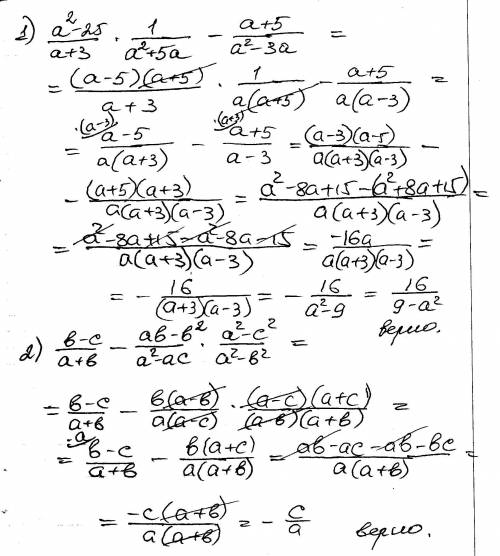 1) (a²-25)/(a+3) · 1/(a²+5a) - (a+5)/(a²-3a) =
= ((a-5)(a+5))/(a+3) · 1/(a(a+5)) - (a+5)/(a(a-3)) =
= (a-5)/(a(a+3)) ·(a-3) - (a+5)/(a-3) ·(a+3) = ((a-3)(a-5))/(a(a+3)(a-3)) -
- ((a+5)(a+3))/(a(a+3)(a-3)) = (a²-8a+15-(a²+8a+15))/(a(a+3)(a-3)) =
= (a²-8a+15-a²-8a-15)/(a(a+3)(a-3)) = (-16a)/(a(a+3)(a-3)) =
= - 16/((a+3)(a-3)) = - 16/(a²-9) = 16/(9-a²)
верно.
2) (в-c)/(a+в) - (aв-в²)/(a²-ac) · (a²-c²)/(a²-в²) =
= (в-c)/(a+в) - (в(a-в))/(a(a-c)) · ((a-c)(a+c))/((a-в)(a+в)) =
= (в-c)/(a+в) ·a - (в(a+c))/(a(a+в)) = (aв-ac-aв-вc)/(a(a+в)) =
= (-c(a+в))/(a(a+в)) = - c/a верно.